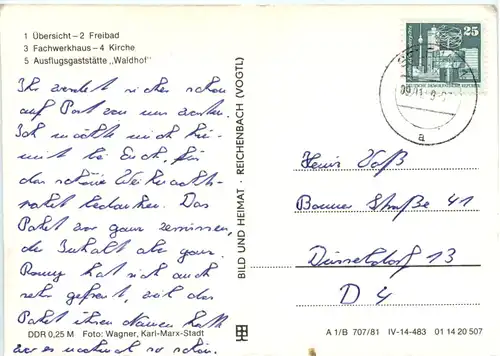 1 Übersicht – 2 Freibad
3 Fachwerkhaus – 4 Kirche
5 Ausflugsgaststätte „Waldhof"
Ihr werdet sicher schon
auf Post von uns warten.
Ich möchte mich hier-
mit bei Euch, für
das schöne Weihnacht-
paket bedanken. Das
Paket war ganz zerrissen,
der Inhalt aber ganz.
Romy hat sich auch
sehr gefreut, weil das
Paket ihren Namen hatte
war es nochmal so schön
DDR 0,25 M Foto: Wagner, Karl-Marx-Stadt
BILD UND HEIMAT · REICHENBACH (VOGTL)
25
DEUTSCHE DEMOKRATISCHE REPUBLIK
a
Voß
Bonner Straße 41
Düsseldorf 13
D 4
A 1/B 707/81 IV-14-483 01 14 20 507